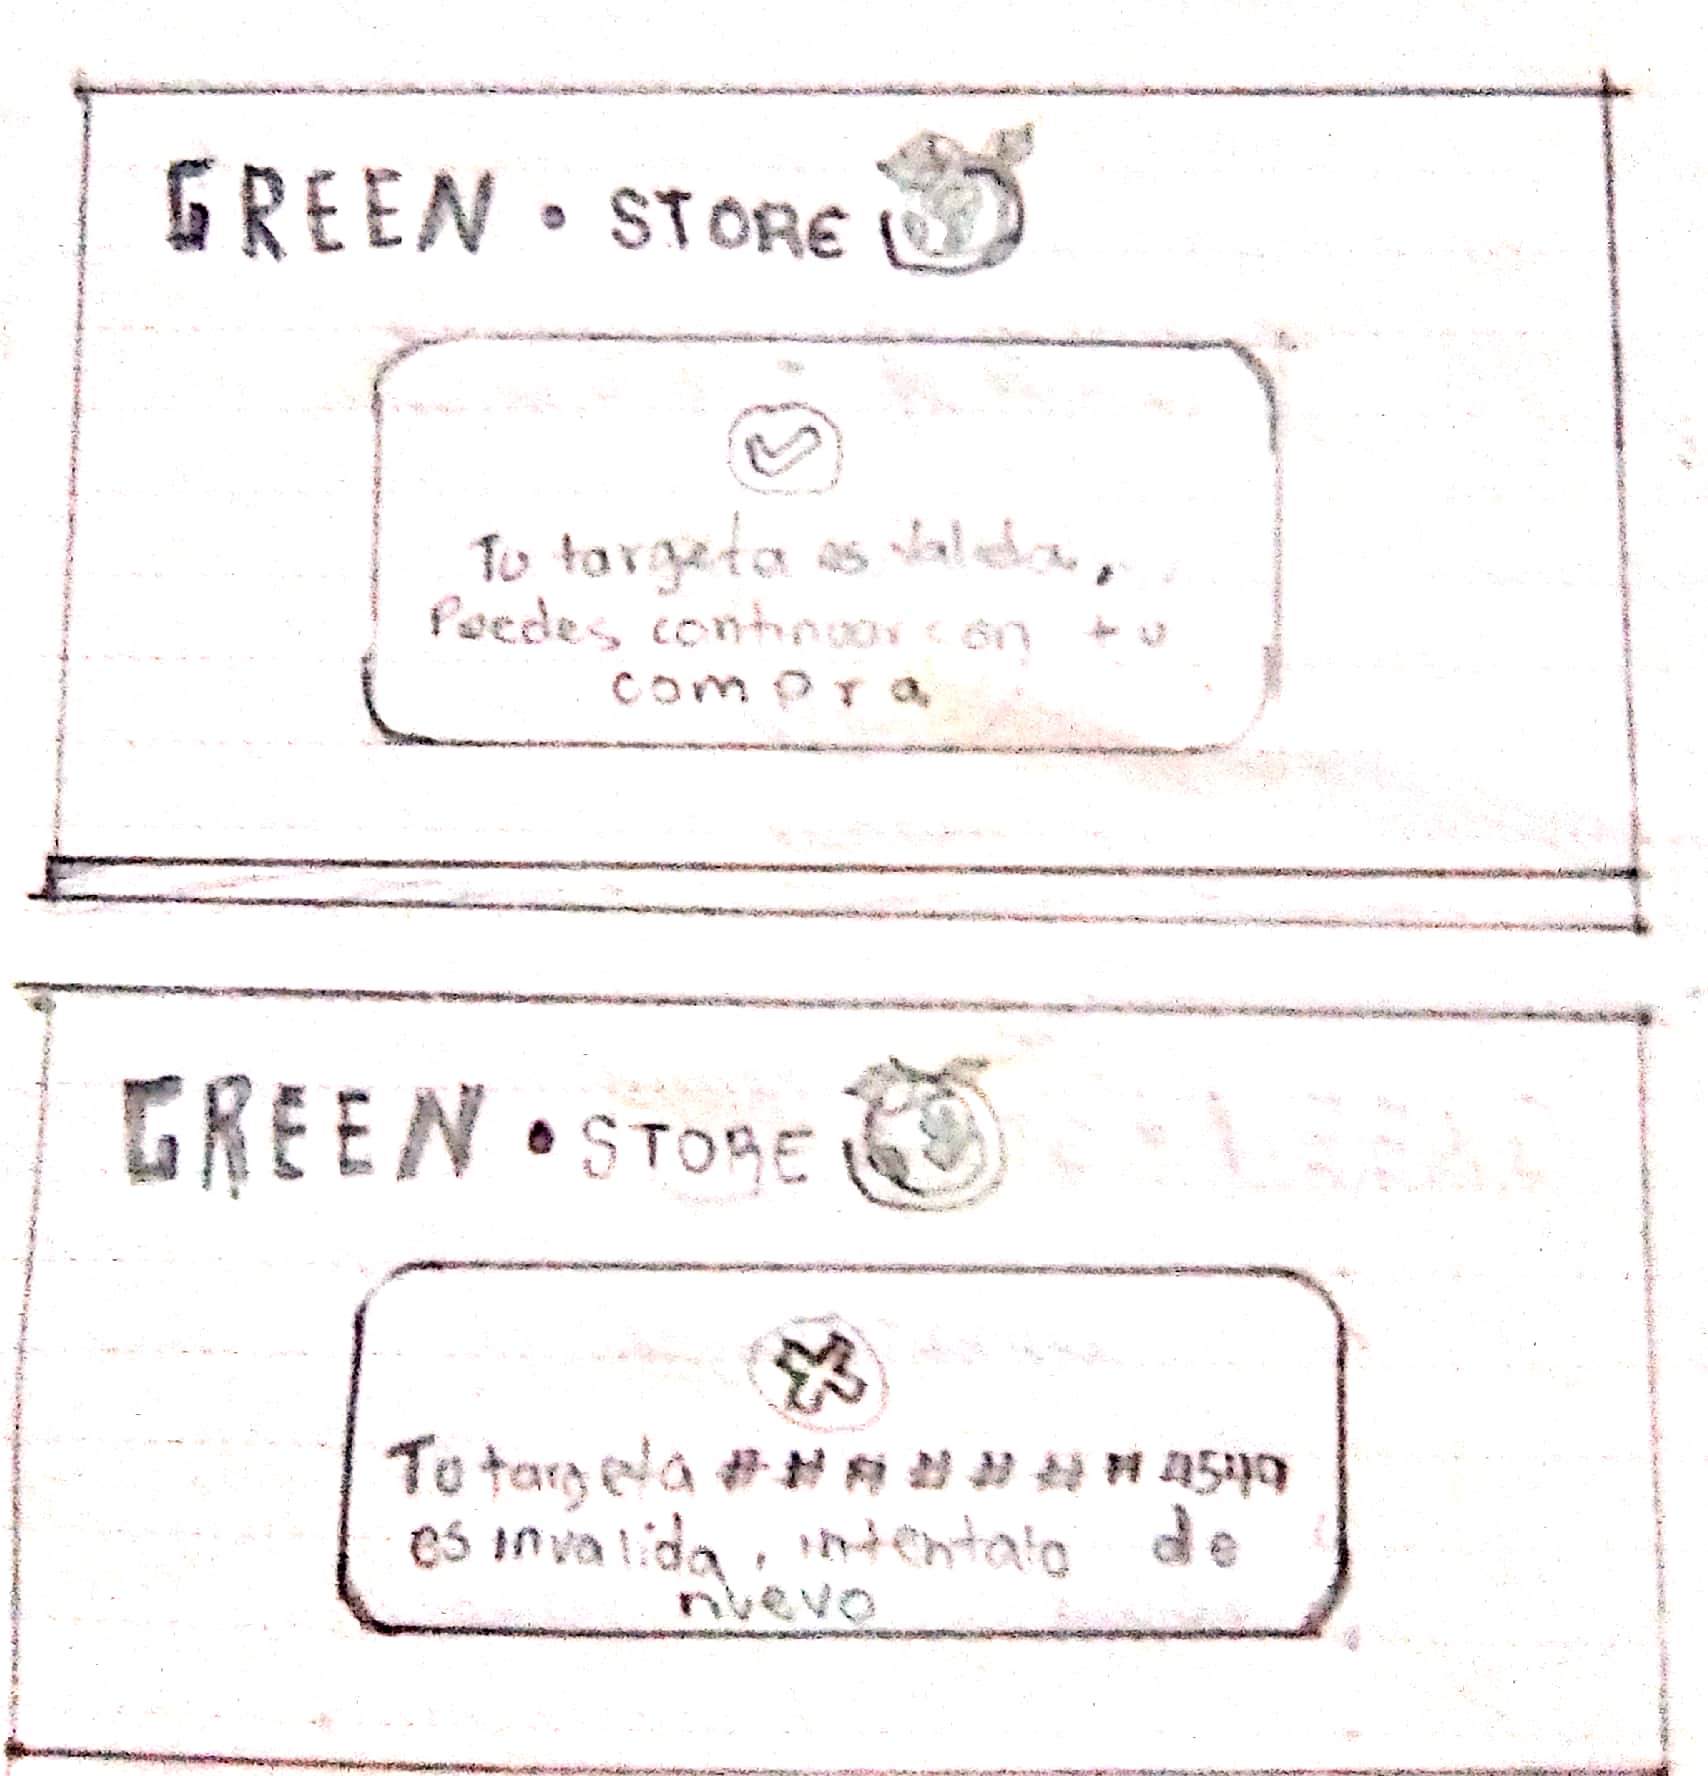 GREEN • STORE
Tu targeta es valida,
Puedes continuar con tu
compra
GREEN • STORE
Tu targeta # # # # # # #
es invalida, intentalo de
nuevo